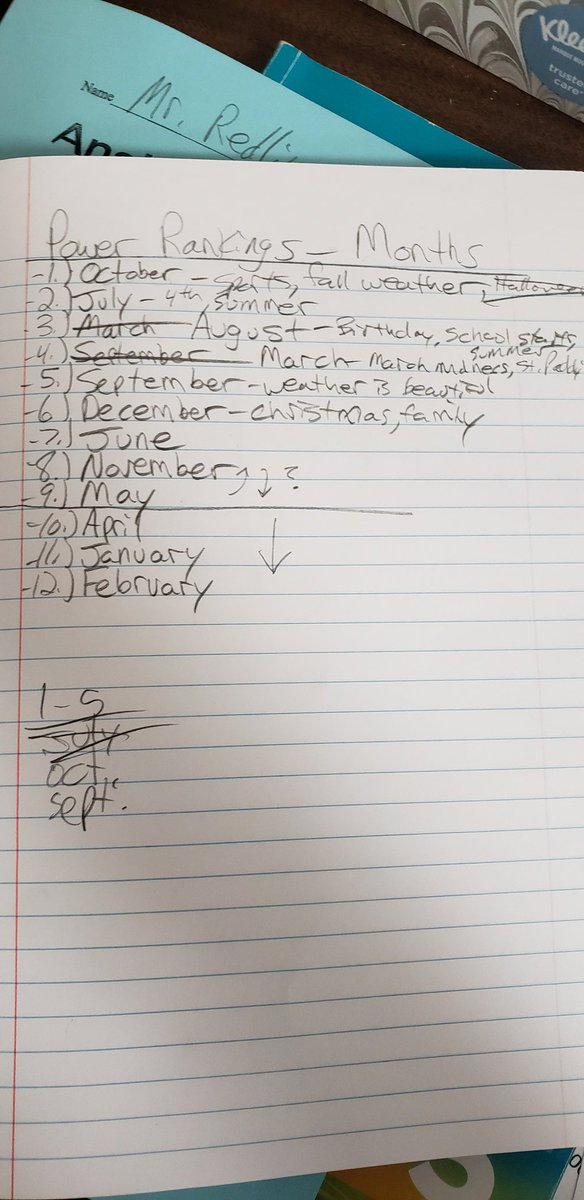 Klee
trusted
care
Name Mr. Redli
Ans
Power Rankings - Months
-1.) October - sports, fall weather, Halloween
-2.) July - 4th, summer
-3.) March August - Birthday, School starts, summer
-4.) September March - March madness, St. Patty
-5.) September - weather is beautiful
-6.) December - christmas, family
-7.) June
-8.) November ↑↓?
-9.) May
-10.) April
-11.) January ↓
-12.) February
1-5
July
Oct.
Sept.